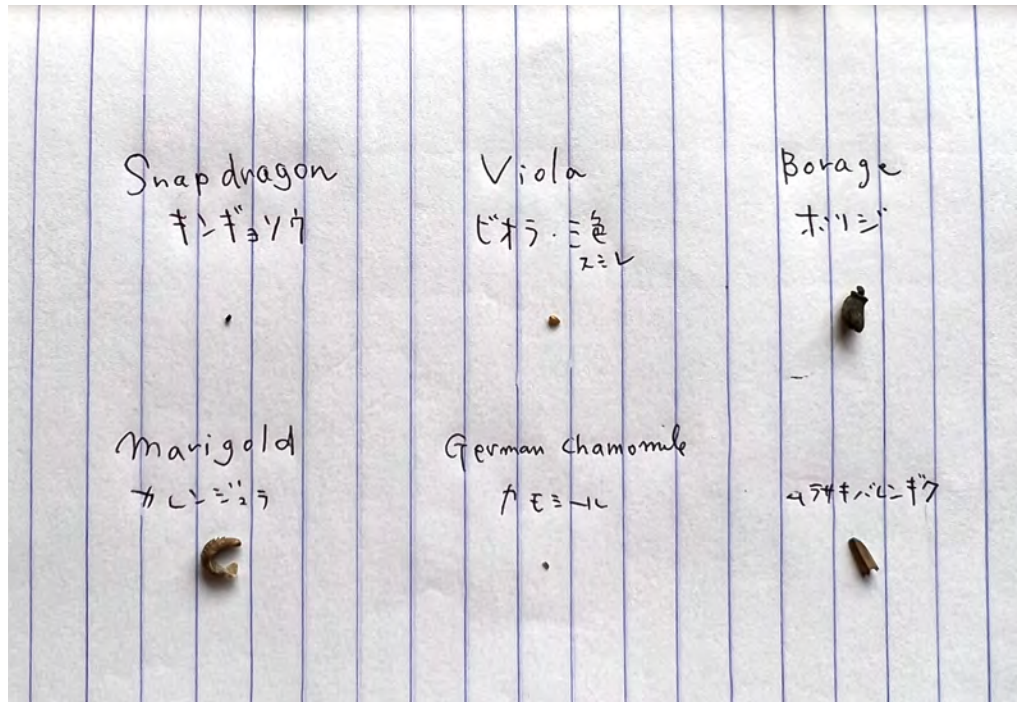 Snapdragon
キンギョソウ
Viola
ビオラ・三色
スミレ
Borage
ボリジ
Marigold
カレンジュラ
German Chamomile
カモミール
ムラサキバレンギク